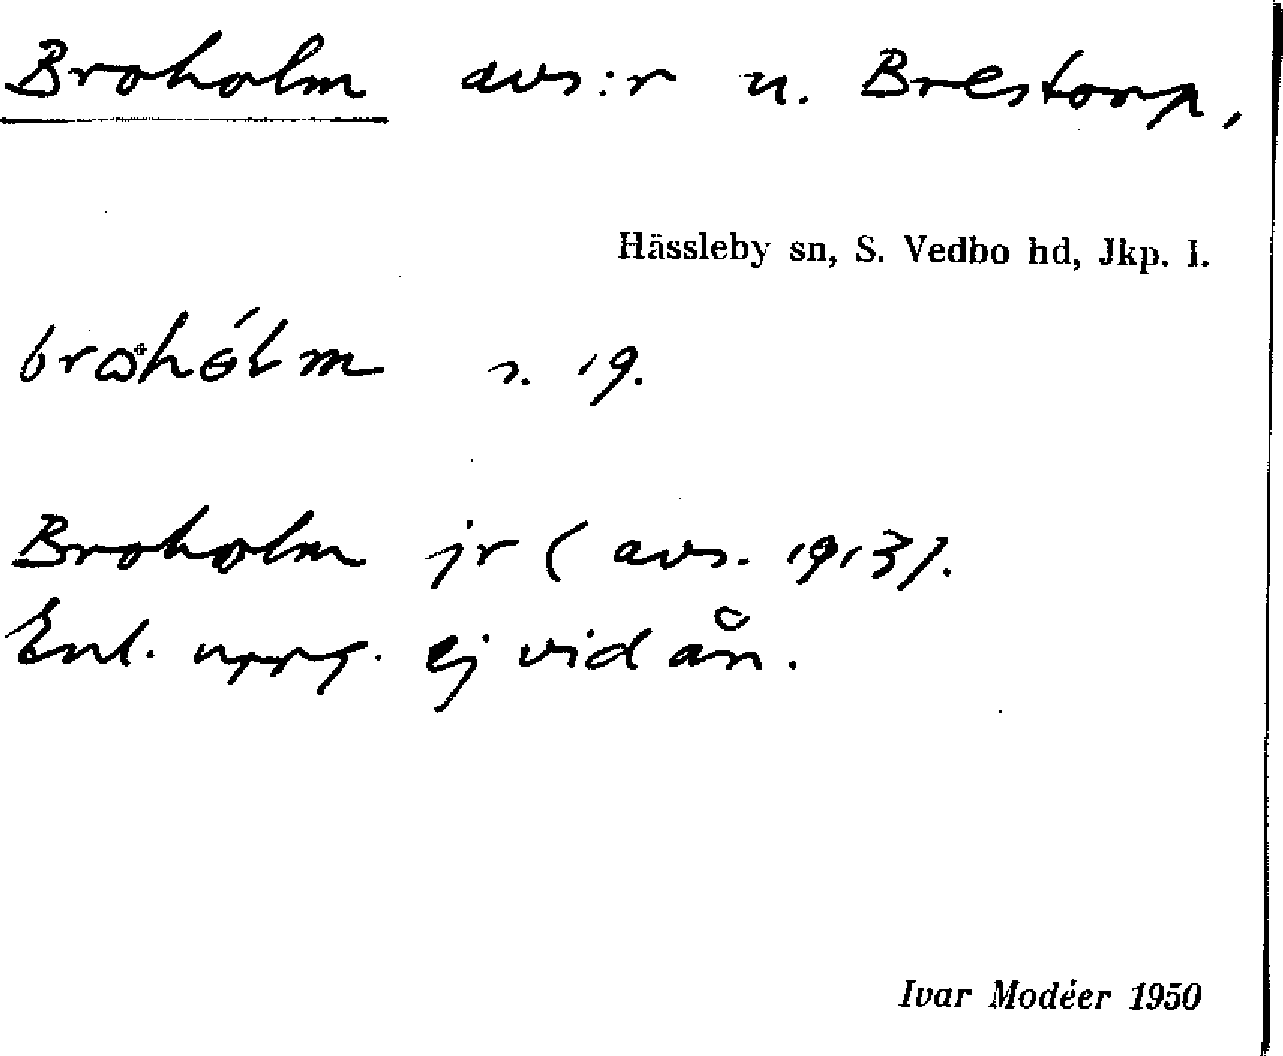 Broholm avs:r u. Brestorp,
Hässleby sn, S. Vedbo hd, Jkp. l.
s. 19.
Broholm jr (avs. 1913).
Enl. uppg. ej vid ån.
Ivar Modéer 1950